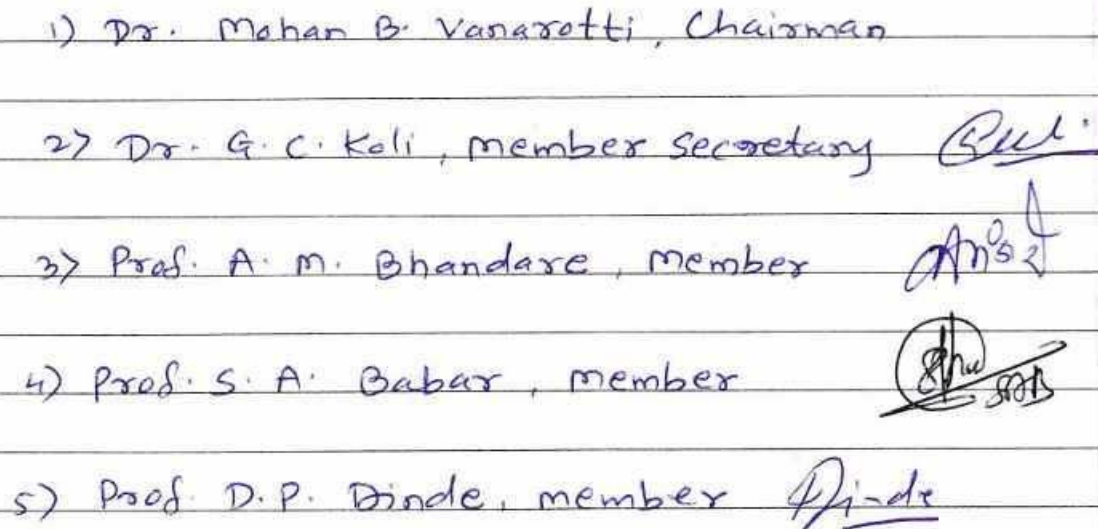 1) Dr. Mohan B. Vanarotti, Chairman
2) Dr. G. C. Koli, member secretary
3) Prof. A. M. Bhandare, member
4) Prof. S. A. Babar, member SAB
5) Prof. D. P. Dinde, member Dinde